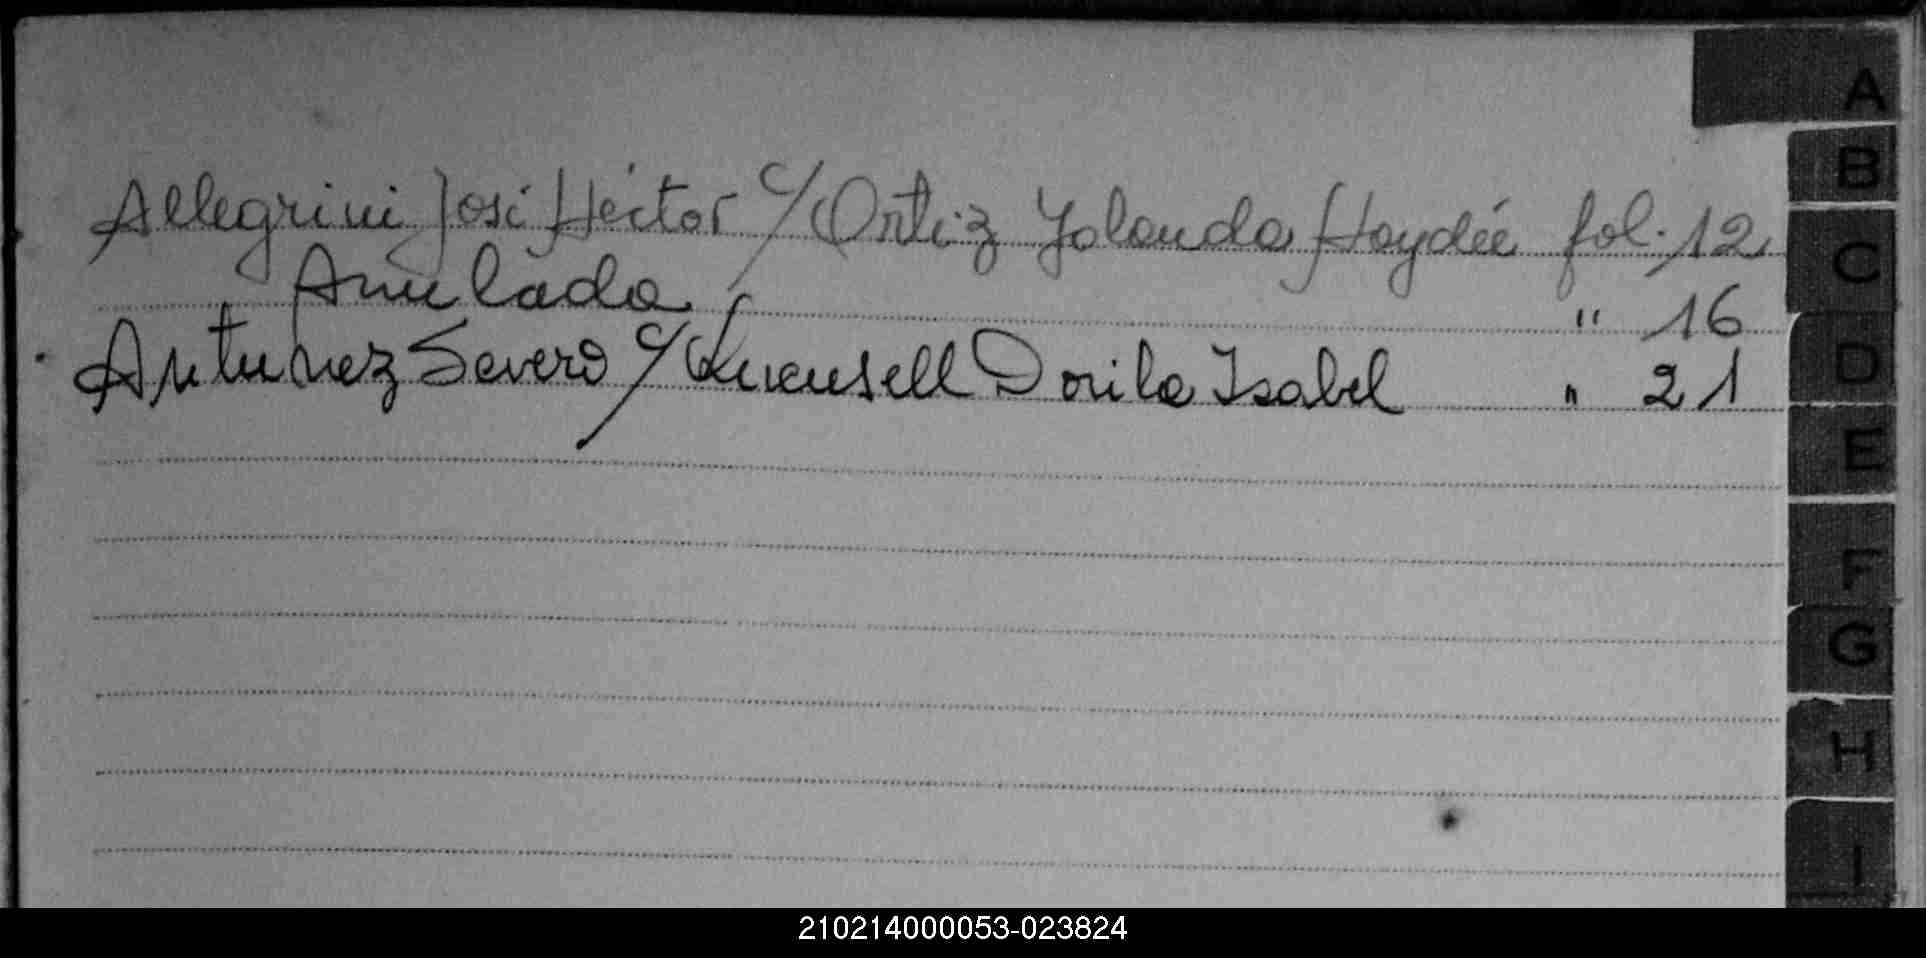 Allegrini José Héctor c/ Ortiz Yolanda Haydée fol. 12
Anulada " 16
Antunez Severo c/ Dorila Isabel " 21
A
B
C
D
E
F
G
H
I
210214000053-023824